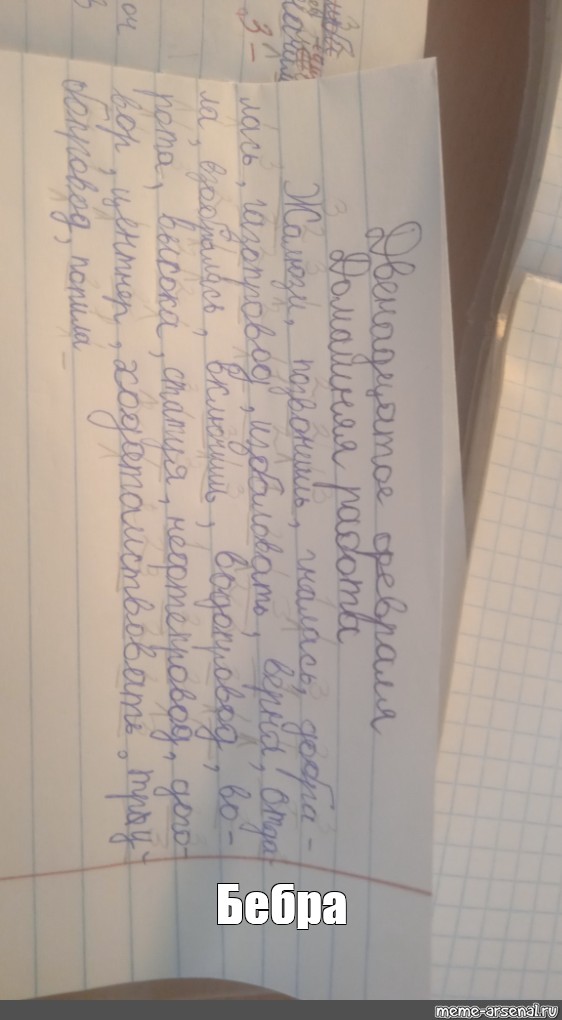 Двенадцатое февраля
Домашняя работа
Жалюзи, позвонишь, гналась, добра-
лась, газопровод, избаловать, верна, отда-
ла, взобралась, включим, водопровод, во-
рота, высока, статуя, нефтепровод, дого-
вор, центнер, ходатайствовать, мусу-
опровод, попила
Бебра
meme-arsenal.ru